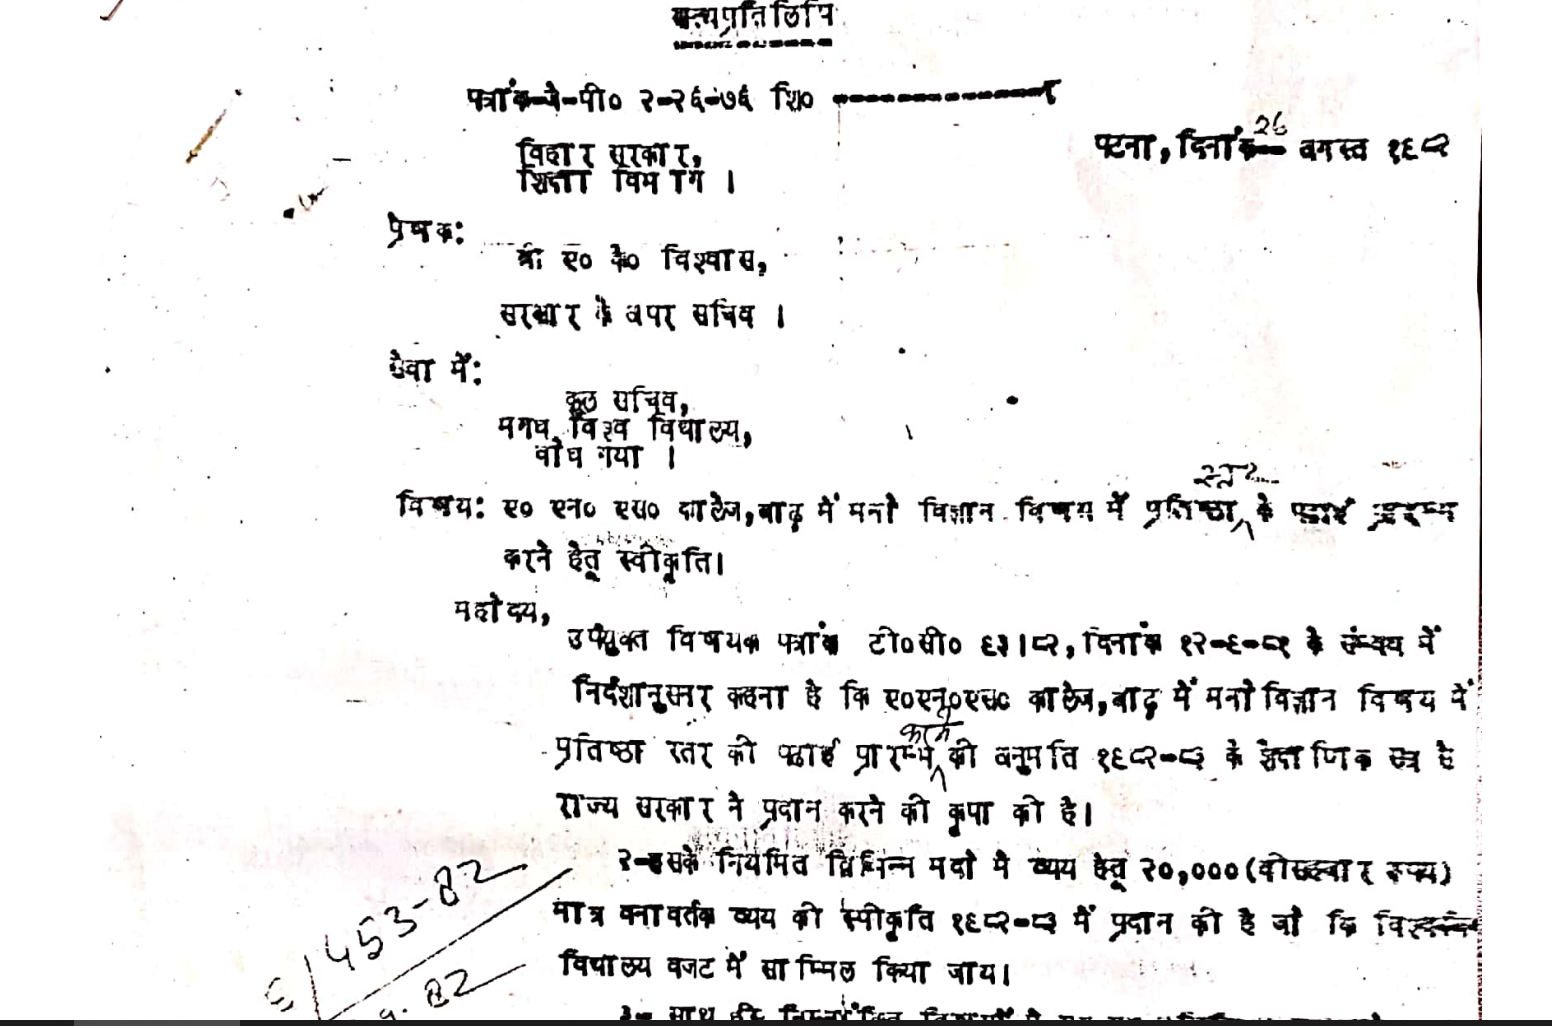 सत्यप्रतिलिपि
पत्रांक-जे-पी० २-२६-७६ शि०
26
पटना, दिनांक अगस्त १९८२
बिहार सरकार,
शिक्षा विभाग ।
प्रेषक:
श्री ए० के० विश्वास,
सरकार के अपर सचिव ।
सेवा में:
कुल सचिव,
मगध विश्व विद्यालय,
बोध गया ।
स्तर
विषय: ए० एन० एस० कालेज, बाढ़ में मनो विज्ञान विषय में प्रतिष्ठा के पढाई प्रारम्भ
करने हेतू स्वीकृति।
महोदय,
उपर्युक्त विषयक पत्रांक टी०सी० ६३।८२, दिनांक के संबंध में
निर्देशानुसार कहना है कि ए०एन०एस० कालेज, बाढ़ में मनो विज्ञान विषय में
करने
प्रतिष्ठा स्तर की पढाई प्रारम्भ की अनुमति १९८२-८३ के शैक्षणिक सत्र से
राज्य सरकार ने प्रदान करने की कृपा की है।
२-इसके नियमित विभिन्न मदों में व्यय हेतू २०,००० (बीसहजार रूपये)
मात्र अनावर्तक व्यय की स्वीकृति १९८२-८३ में प्रदान की है जो कि विश्व
विद्यालय बजट में सम्मिलित किया जाय।
453-82
9.82
३- साथ ही